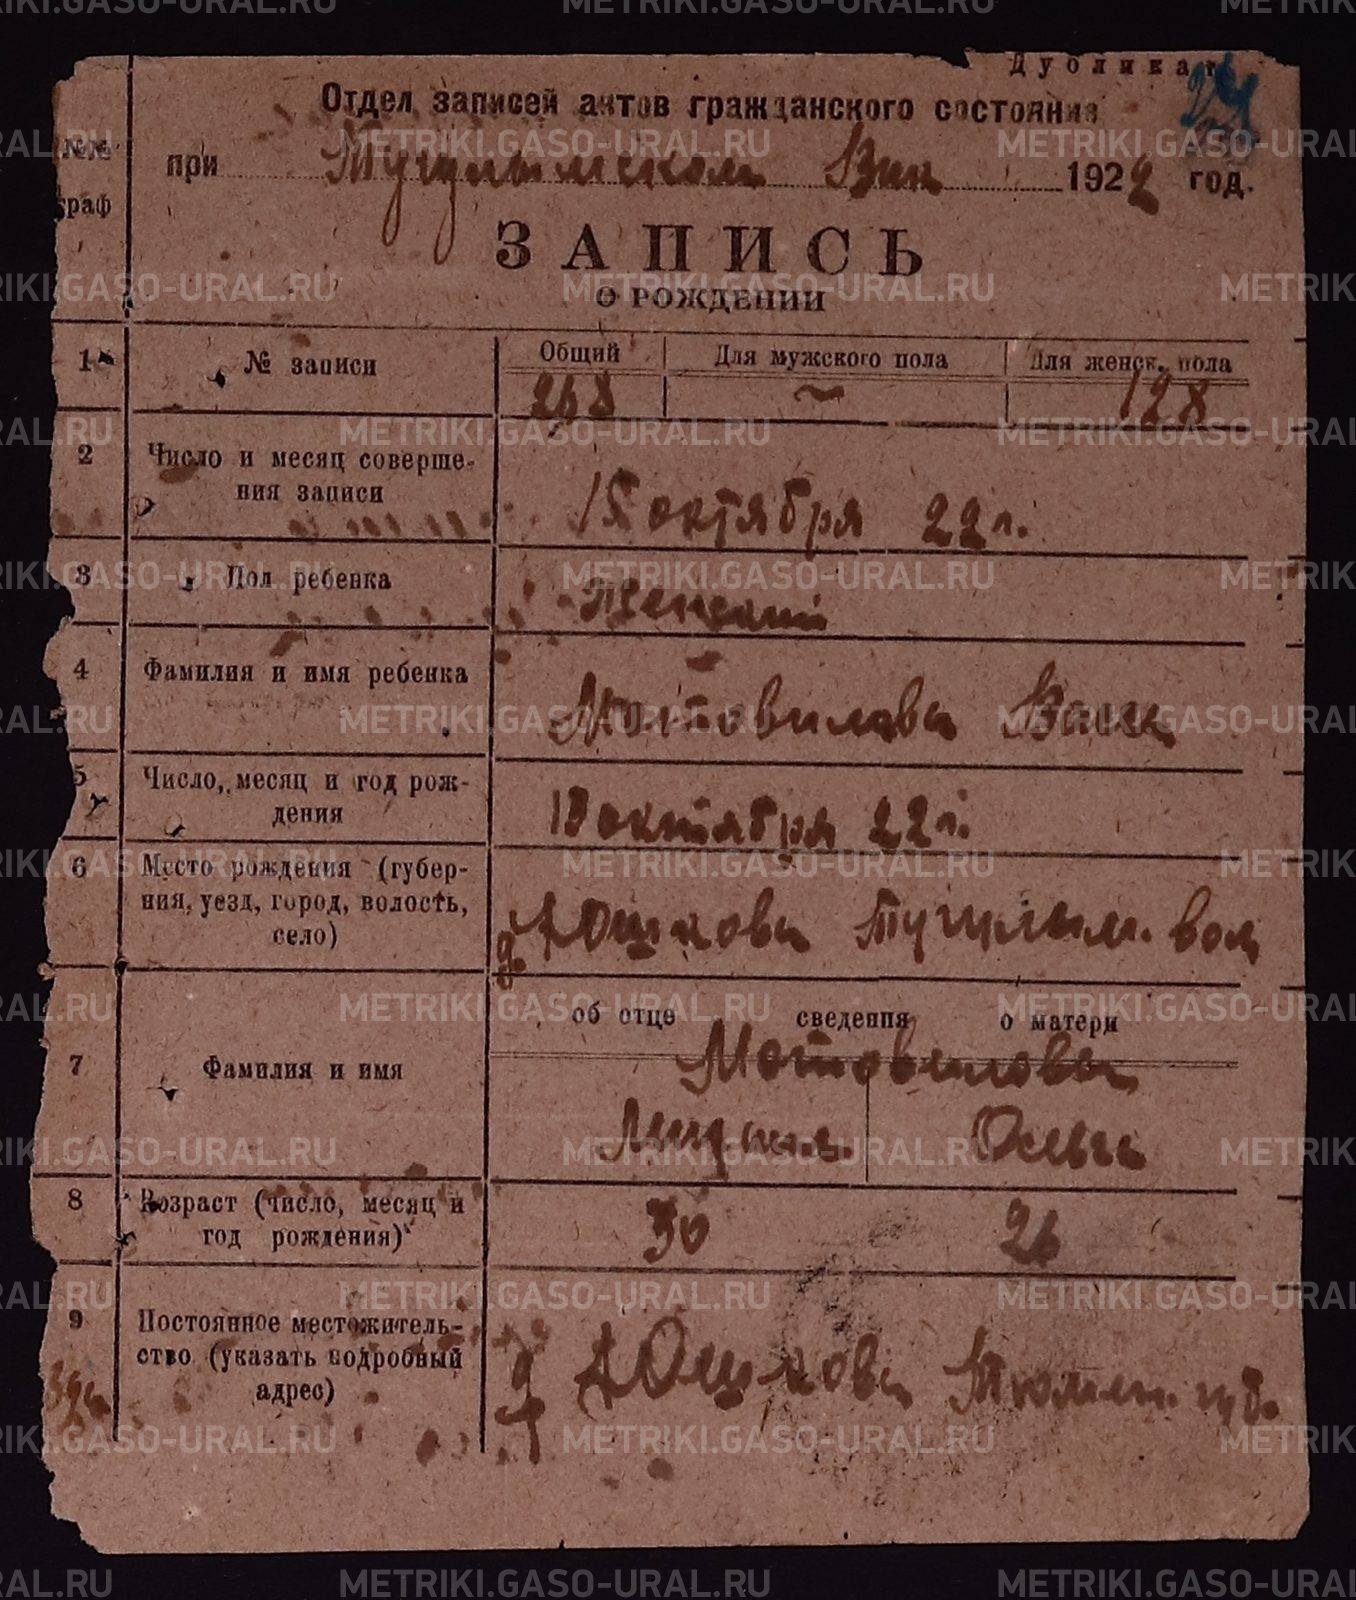 Дубликат
24
Отдел записей актов гражданского состояния
№№ граф
при Тугулымском Вик 1922 год.
ЗАПИСЬ
О РОЖДЕНИИ
1 № записи Общий Для мужского пола Для женск. пола
268 — 128
2 Число и месяц соверше-
ния записи
15 октября 22 г.
3 Пол ребенка Женский
4 Фамилия и имя ребенка
Мотовилова
5 Число, месяц и год рож-
дения
13 октября 22 г.
6 Место рождения (губер-
ния, уезд, город, волость,
село)
д. Юшкова Тугулым. вол
об отце сведения о матери
7 Фамилия и имя
Мотовиловы
Ольга
8 Возраст (число, месяц и
год рождения)
30 26
9 Постоянное местожитель-
ство (указать подробный
адрес)
д Юшкова Тюмен. губ.
METRIKI.GASO-URAL.RU